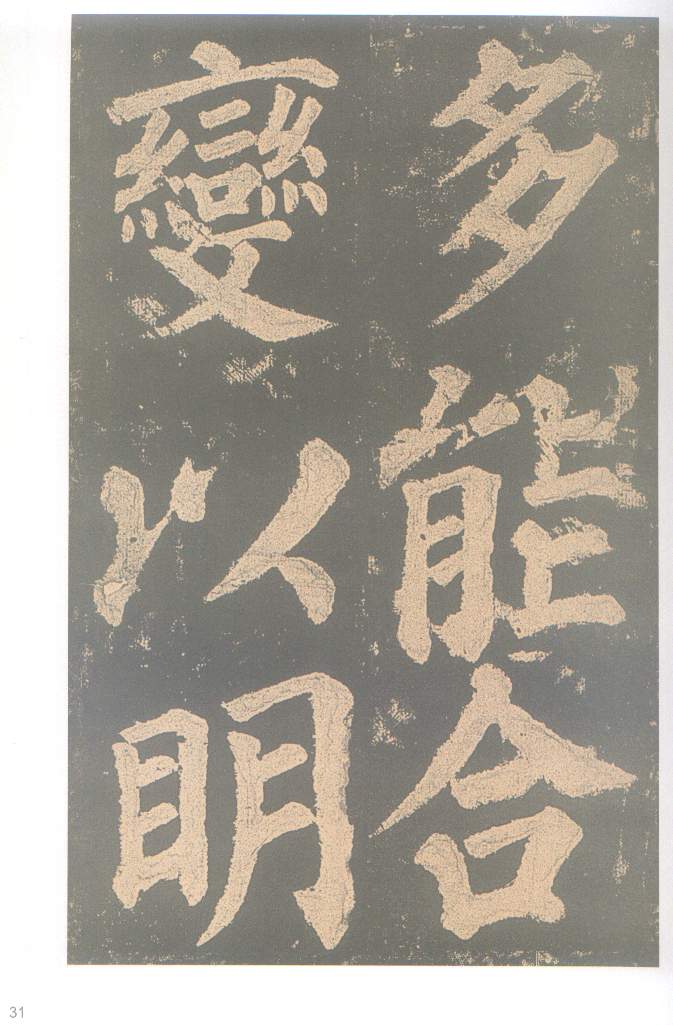 多能合
變以眀
31